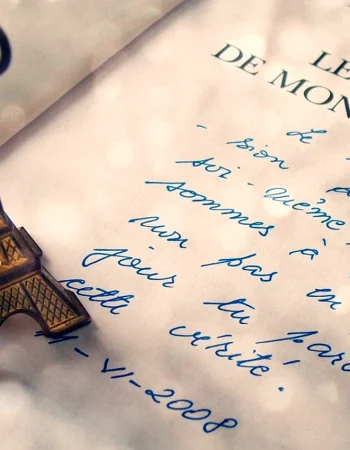 LE
DE MON
- Le
sion
soi-même
sommes à
non pas en
jour tu
cette vérité.
-VI-2008